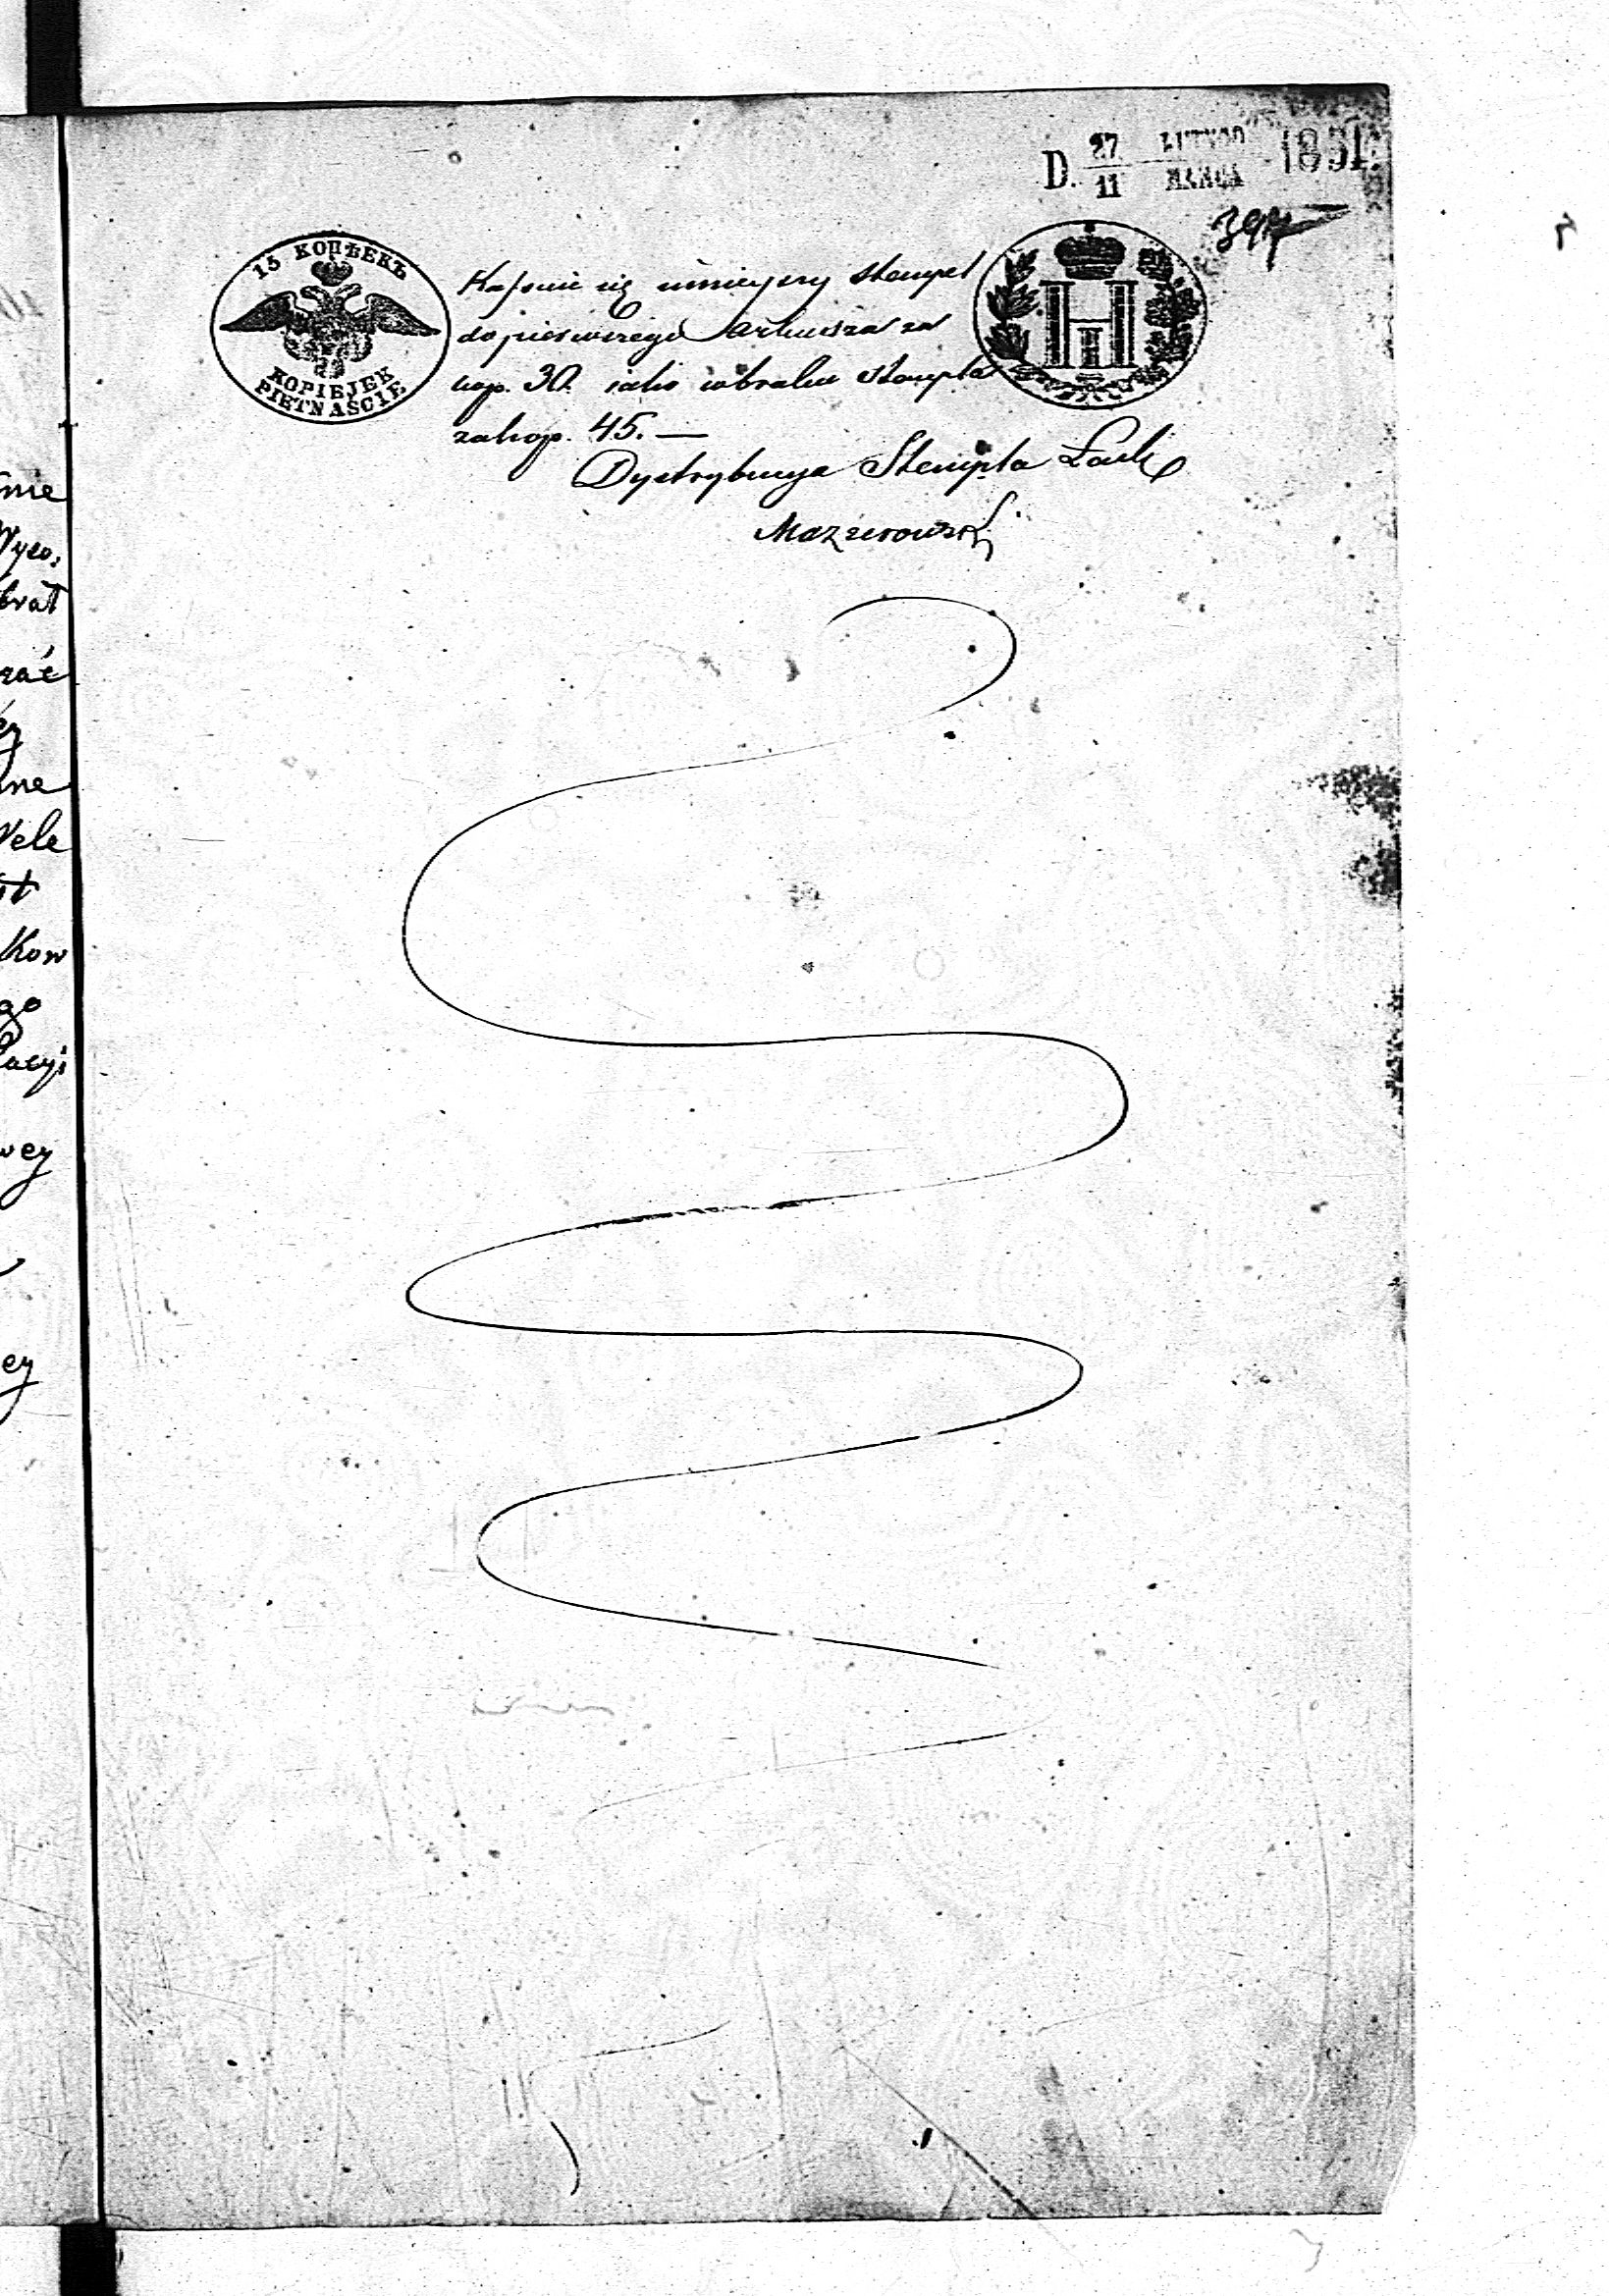 D. 27/11 LUTEGO/MARCA 1851.
397
15 КОПѢЕКЪ
KOPIEJEK
PIĘTNAŚCIE
Kassuie się ninieyszy stempel
do pierwszego arkusza za
kop. 30. iako wbraku stempla
za kop. 45. —
Dystrybucya Stempla
Mazurowski
nie
Wyso,
brał
rać
ne
Wele
kow
ago
lacyi
wey
ey